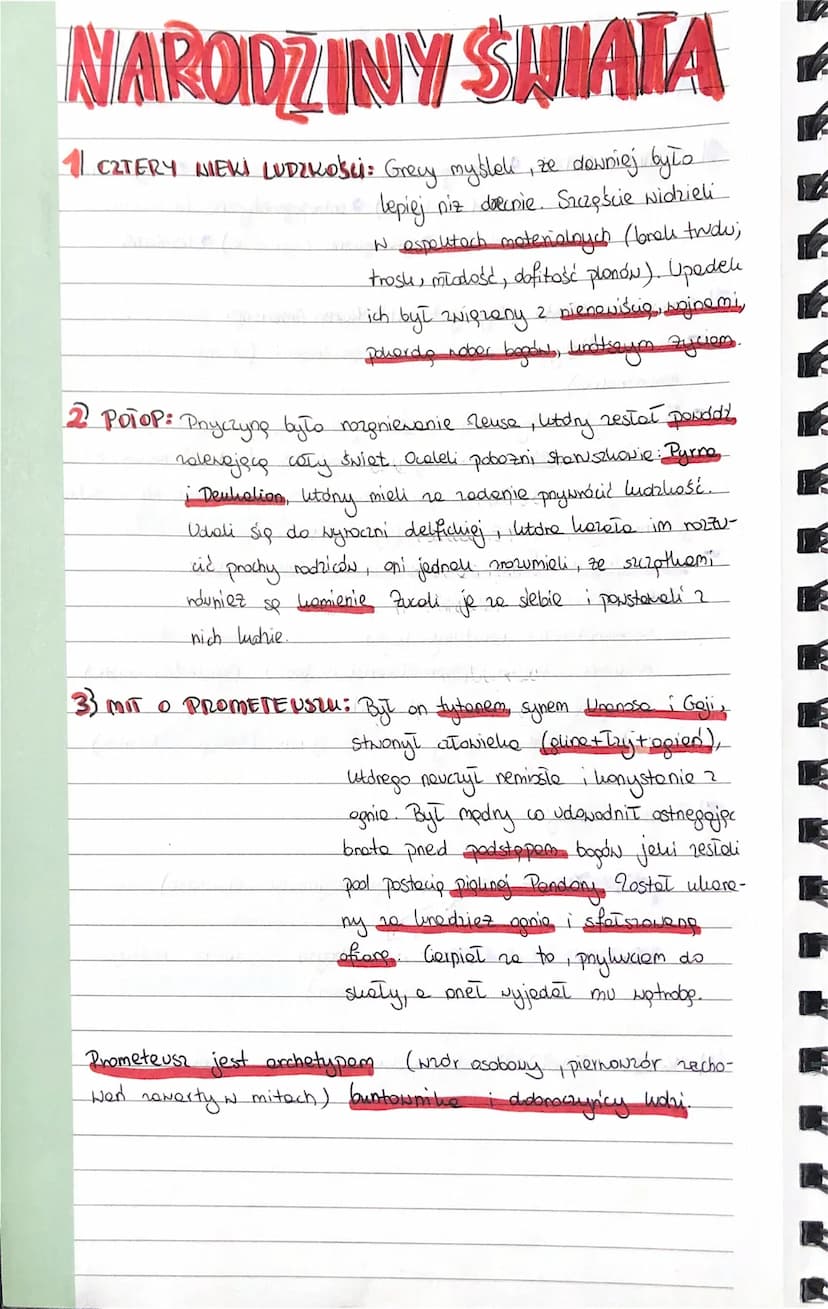 NARODZINY ŚWIATA
1) CZTERY WIEKI LUDZKOŚCI: Grecy myśleli, że dawniej było
lepiej niż obecnie. Szczęście widzieli
w aspektach materialnych (brak trudu,
trosk, młodość, dofitość plonów). Upadek
ich był związany z nienawiścią, wojnami,
pogardą wobec bogów, krótszym życiem.
2) POTOP: Przyczyną było rozgniewanie Zeusa, który zesłał powódź
zalewającą cały świat. Ocaleli pobożni staruszkowie: Pyrra
i Deukalion, którzy mieli za zadanie przywrócić ludzkość.
Udali się do wyroczni delfickiej, która kazała im rozrzu-
cić prochy rodziców, oni jednak zrozumieli, że szczątkami
również są kamienie. Rzucali je za siebie i powstawali z
nich ludzie.
3) MIT O PROMETEUSZU: Był on tytanem, synem Uranosa i Gaji,
stworzył człowieka (glina+łzy+ogień),
którego nauczył remiosła i korzystania z
ognia. Był mądry co udowodnił ostrzegając
brata przed podstępem bogów jaki zesłali
pod postacią pięknej Pandory. Został ukara-
ny za kradzież ognia i sfałszowaną
ofiarę. Cierpiał za to, przykuciem do
skały, a orzeł wyjadał mu wątrobę.
Prometeusz jest archetypem (wzór osobowy, pierwowzór zacho-
wań zawarty w mitach) buntownika i dobroczyńcy ludzi.